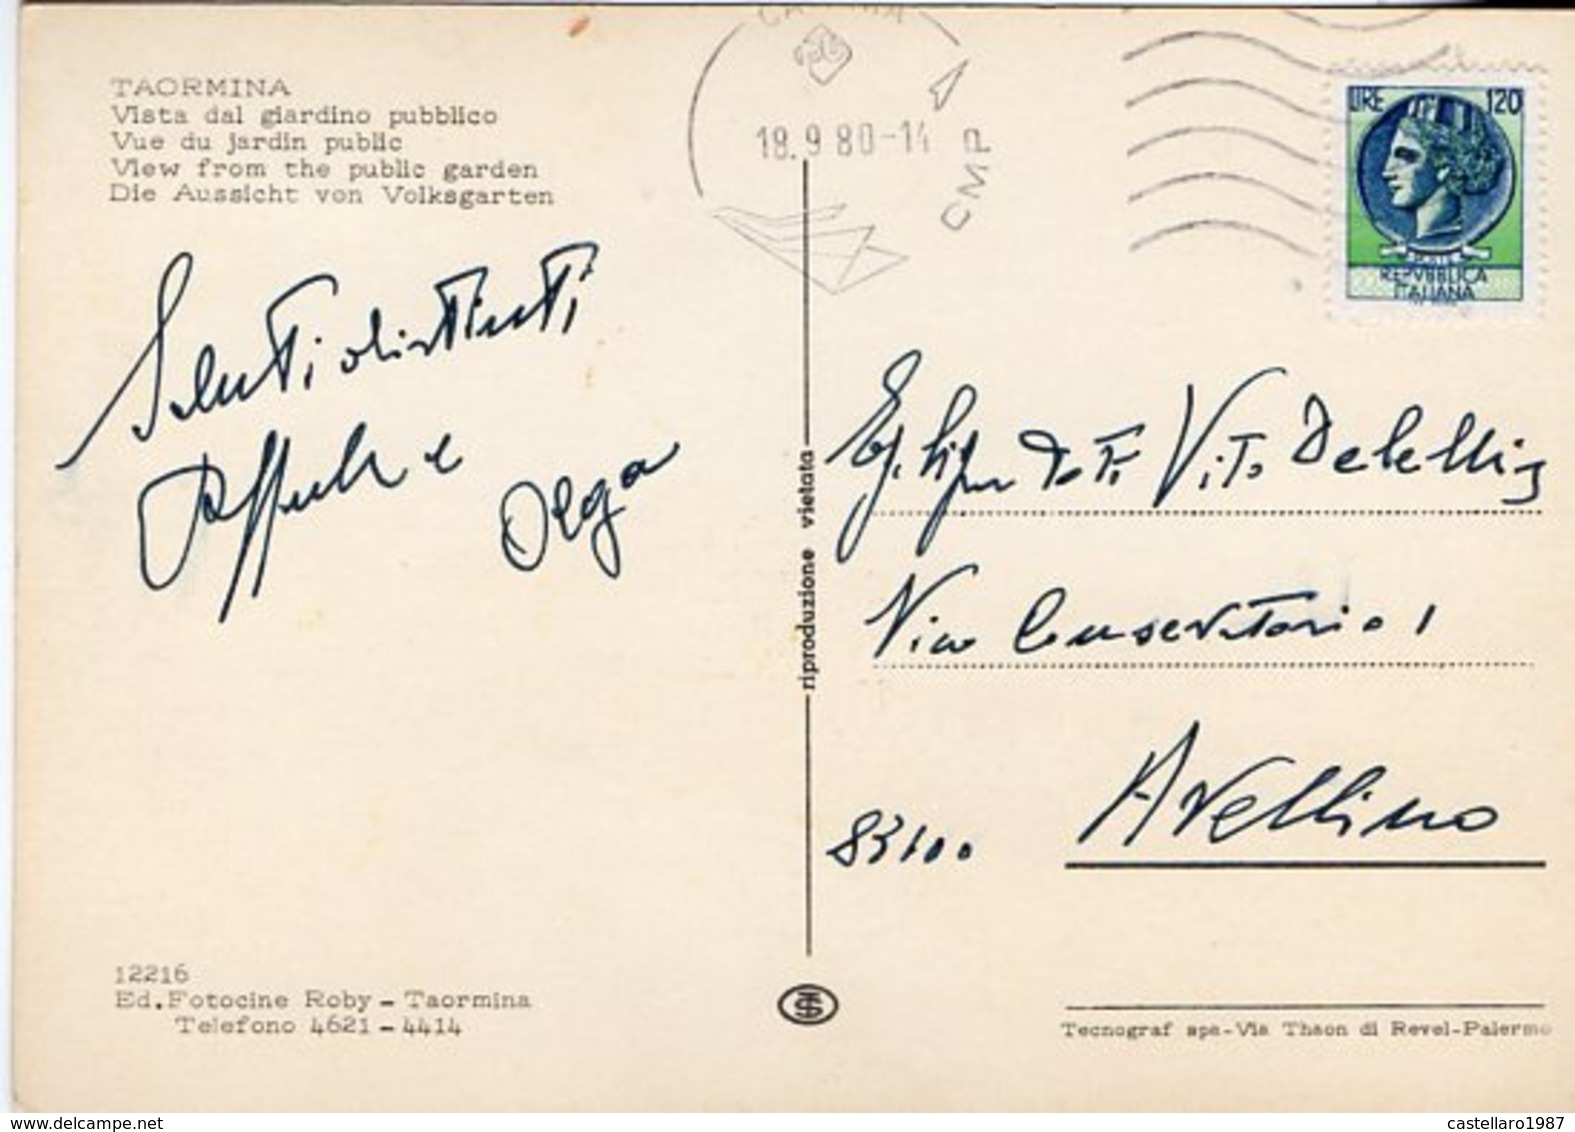 TAORMINA
Vista dal giardino pubblico
Vue du jardin public
View from the public garden
Die Aussicht von Volksgarten
18.9 80-14
CMP
LIRE 120
REPVBBLICA
ITALIANA
Saluti distinti
e
Olga
riproduzione vietata
Dott. Vito
Via Conservatorio 1
83100
Avellino
12216
Ed. Fotocine Roby - Taormina
Telefono 4621 - 4414
Tecnograf spa - Via Thaon di Revel-Palermo
delcampe.net
castellaro1987